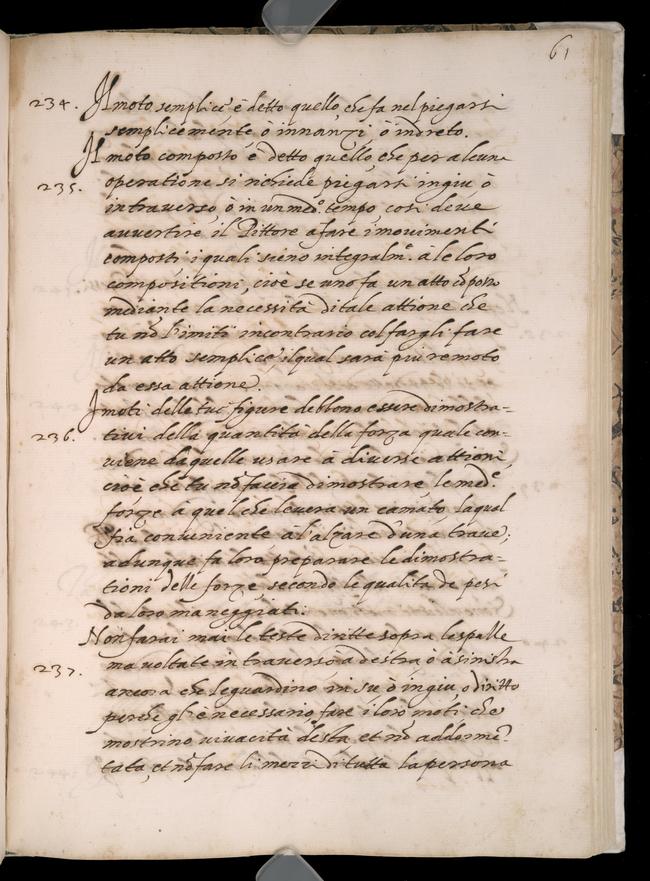 61
234. Il moto semplice è detto quello, che fa nel piegarsi
semplicemente, ò innanzi, ò indreto.
Il moto composto è detto quello, che per alcuna
235. operatione si richiede piegarsi ingiu ò
intraverso, ò in un med.º tempo, così deve
avvertire il Pittore a fare i movimenti
composti i quali sieno integralm.e à le loro
compositioni, cioè se uno fa un atto cōposto
mediante la necessità di tale attione che
tu nō l'imiti incontrario col fargli fare
un atto semplice, il qual sarà più remoto
da essa attione.
I moti delle tue figure debbono essere dimostra-
236. tivi della quantità della forza quale con-
viene da quelle usare à diverse attioni,
cioè che tu nō facia dimostrare le med.e
forze a quel che levera un camato, laqual
fia conveniente à l'alzare d'una trave;
adunque fa loro preparare le dimostra-
tioni delle forze secondo le qualità de pesi
da loro maneggiati.
Non farai mai le teste diritte sopra le spalle
237. ma voltate in traverso à destra ò à sinistra
ancora che le guardino in su ò ingiu, o diritto
perche gl'è necessario fare i loro moti che
mostrino vivacità desta, et nō addormē-
tata, et nō fare li mezzi di tutta la persona